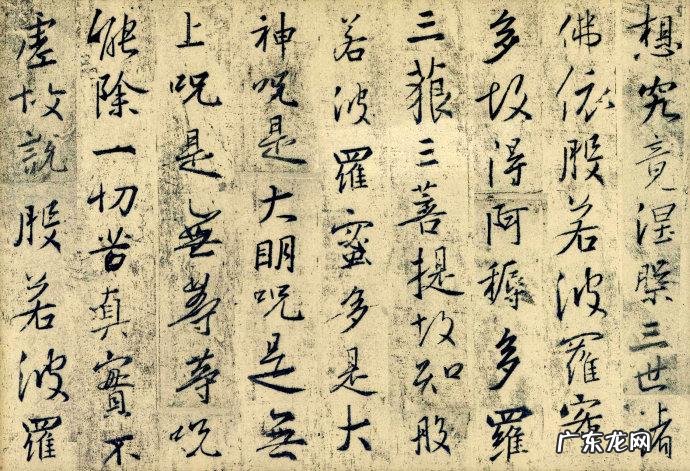 想究竟涅槃三世諸
佛依般若波羅蜜
多故得阿耨多羅
三藐三菩提故知般
若波羅蜜多是大
神呪是大明呪是無
上呪是無等等呪
能除一切苦真實不
虛故說般若波羅
广东龙网